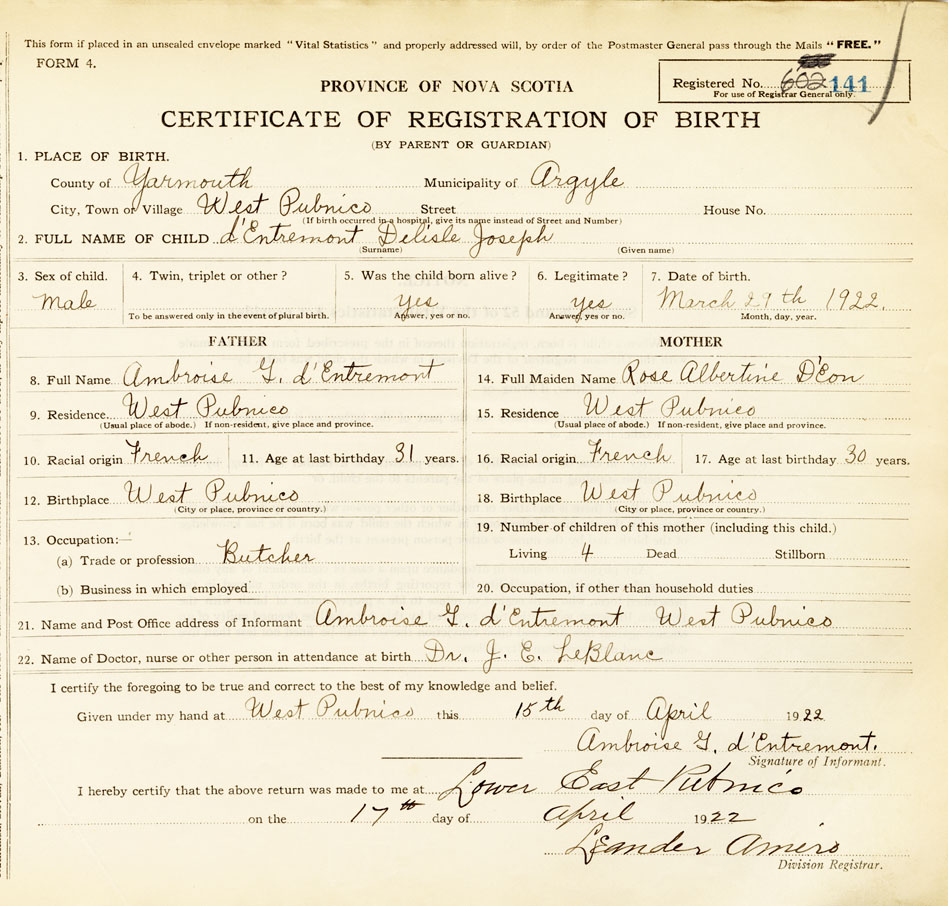 This form if placed in an unsealed envelope marked "Vital Statistics" and properly addressed will, by order of the Postmaster General pass through the Mails "FREE."
FORM 4.
Registered No. 602 141
For use of Registrar General only.
PROVINCE OF NOVA SCOTIA
CERTIFICATE OF REGISTRATION OF BIRTH
(BY PARENT OR GUARDIAN)
1. PLACE OF BIRTH.
County of Yarmouth Municipality of Argyle
City, Town or Village West Pubnico Street House No.
(If birth occurred in a hospital, give its name instead of Street and Number)
2. FULL NAME OF CHILD d'Entremont Delisle Joseph
(Surname) (Given name)
3. Sex of child. 4. Twin, triplet or other? 5. Was the child born alive? 6. Legitimate? 7. Date of birth.
Male yes yes March 29th 1922.
To be answered only in the event of plural birth. Answer, yes or no. Answer, yes or no. Month, day, year.
FATHER MOTHER
8. Full Name Ambroise G. d'Entremont 14. Full Maiden Name Rose Albertine D'Eon
9. Residence West Pubnico 15. Residence West Pubnico
(Usual place of abode.) If non-resident, give place and province. (Usual place of abode.) If non-resident, give place and province.
10. Racial origin French 11. Age at last birthday 31 years. 16. Racial origin French 17. Age at last birthday 30 years.
12. Birthplace West Pubnico 18. Birthplace West Pubnico
(City or place, province or country.) (City or place, province or country.)
13. Occupation:— 19. Number of children of this mother (including this child.)
(a) Trade or profession Butcher Living 4 Dead Stillborn
(b) Business in which employed 20. Occupation, if other than household duties
21. Name and Post Office address of Informant Ambroise G. d'Entremont West Pubnico
22. Name of Doctor, nurse or other person in attendance at birth Dr. J. E. LeBlanc
I certify the foregoing to be true and correct to the best of my knowledge and belief.
Given under my hand at West Pubnico this 15th day of April 1922
Ambroise G. d'Entremont.
Signature of Informant.
I hereby certify that the above return was made to me at Lower East Pubnico
on the 17th day of April 1922
Leander Amiro
Division Registrar.